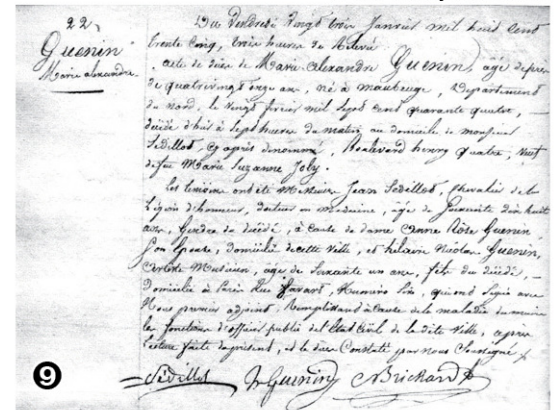 22
Guenin
Marie alexandre
Du Vendredi Vingt trois Janvier mil huit cent
trente cinq, trois heures de relevé
acte de décès de Marie Alexandre Guenin, âgé de près
de quatrevingt onze ans, né à maubeuge, Département
du nord, le Vingt février mil sept cent quarante quatre, —
décédé d'hui à sept heures du matin au domicile de monsieur
Sédillot, cy après dénommé, Boulevard henry quatre, Veuf
de feu Marie Suzanne Joly.
Les témoins ont été Messieurs Jean Sédillot, chevalier de la
Légion d'honneur, docteur en medecine, âgé de soixante dix huit
ans, Gendre du décédé, à cause de dame Anne Rose Guenin
son épouse, domicilié de cette Ville, et hilaire Nicolas Guenin,
artiste Musicien, âgé de soixante un ans, fils du décédé, —
Domicilié à Paris Rue favart, Numéro Six, qui ont signé avec
Nous premier adjoint, Remplissant à cause de la maladie du maire
les fonctions d'officier public de l'État Civil de la dite Ville, après
lecture faite du présent, et le décès Constaté par nous Soussigné
Sédillot h Guenin Brichard
9